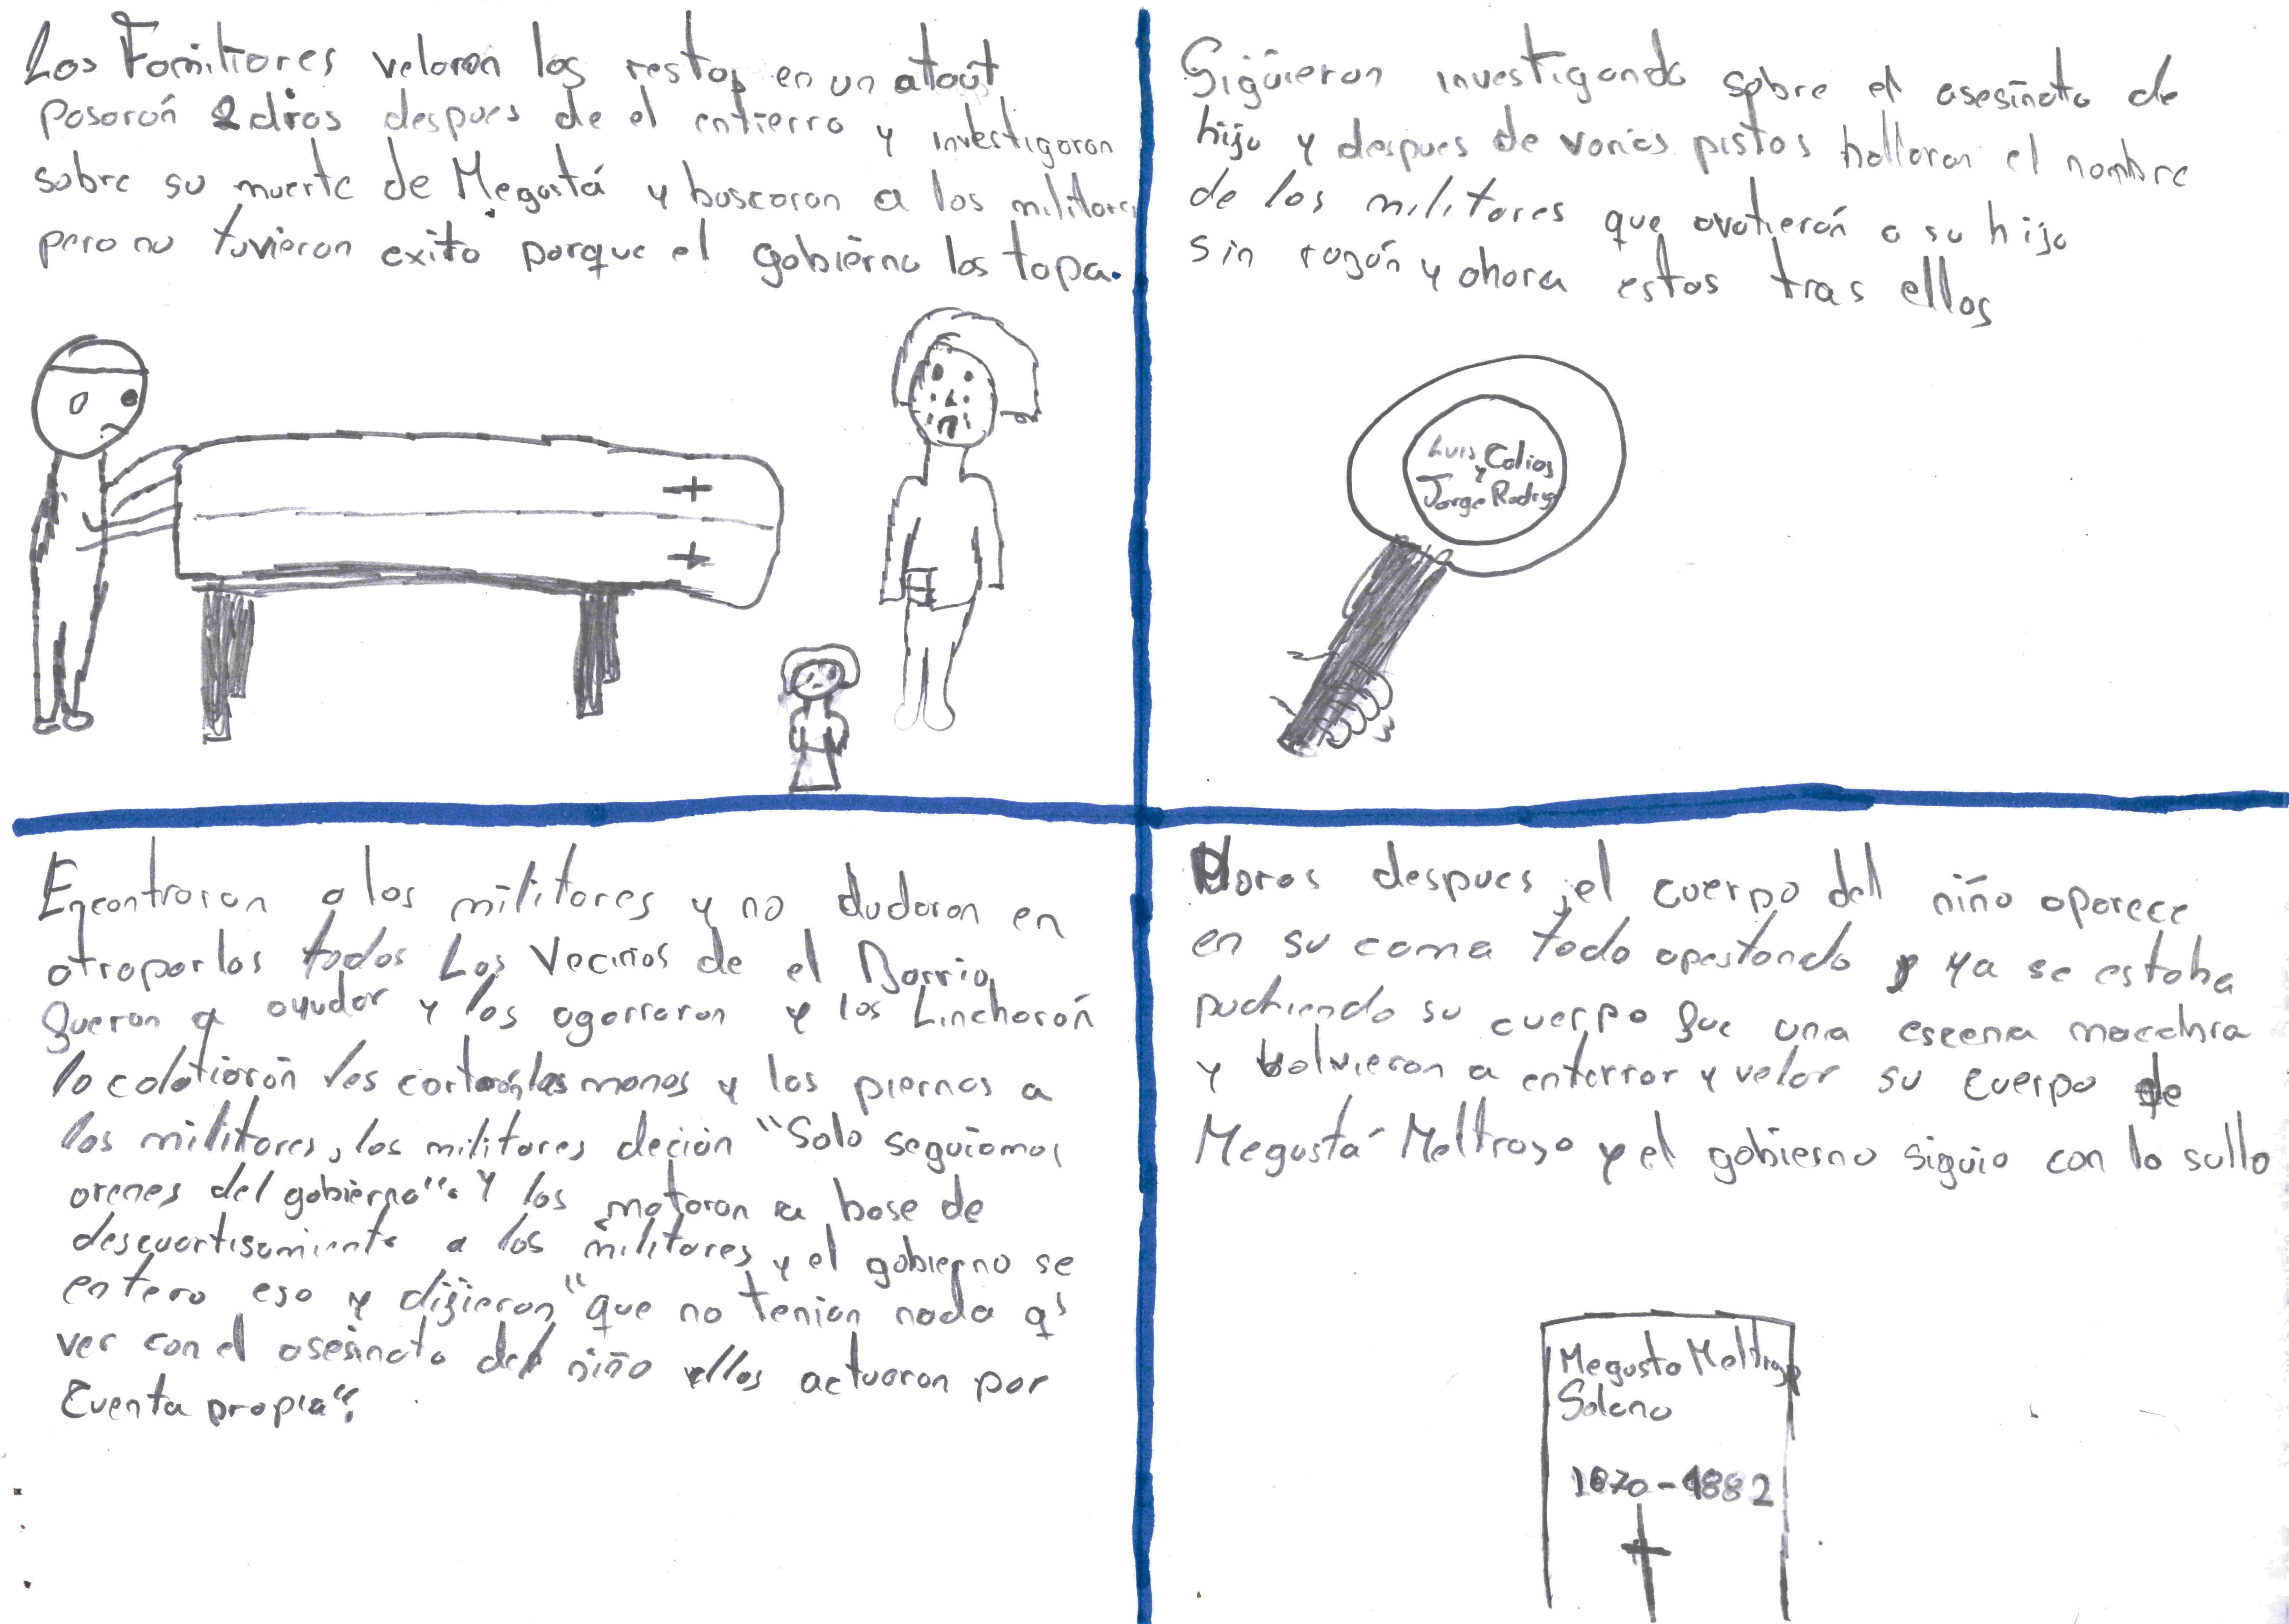 Los Familiares velaron los restos en un ataút
pasarón 2 dias despues de el entierro y investigaron
sobre su muerte de Megustá y buscaron a los militares
pero no tuvieron exito porque el gobierno los tapa.
Sigüieron investigando sobre el asesinato de
hijo y despues de varias pistas hallaron el nombre
de los militares que avatierón a su hijo
sin razón y ahora estos tras ellos
Luis Calios
y
Jorge Rodrig
Encontraron a los militares y no dudaron en
atraparlos todos Los Vecinos de el Barrio
fueron a ayudar y los agarraron y los Lincharón
lo colatiarón les cortarón las manos y las piernas a
los militares, los militares decían "Solo seguiamos
orenes del gobierno". Y los mataron a base de
descuartisamiento a los militares y el gobierno se
entero eso y dijieron "que no tenian nada q'
ver con el asesinato del niño ellos actuaron por
Cuenta propia".
Horas despues, el cuerpo del niño aparece
en su cama todo apestando y ya se estaba
pudriendo su cuerpo fue una escena macabra
y bolvieron a enterrar y velar su cuerpo de
Megustá Meltrozo y el gobierno siguio con lo sullo
Megusto Meltrozo
Solano
1870-1882